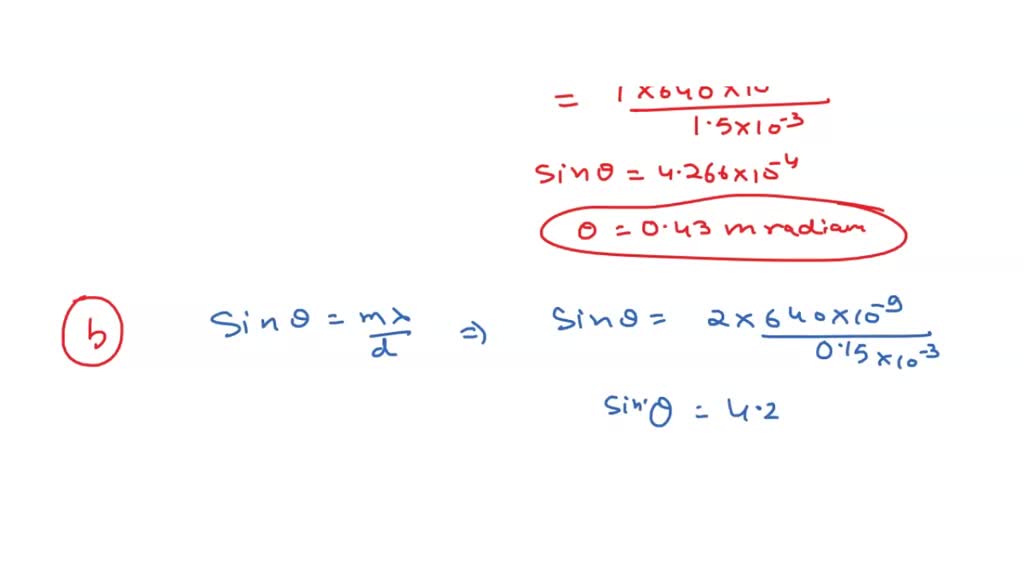 = 1 × 640 × 10
1.5×10⁻³
Sinθ = 4.266×10⁻⁴
θ = 0.43 m radian
b Sinθ = mλ/d ⇒ Sinθ = 2 × 640×10⁻⁹
0.15 ×10⁻³
Sin θ = 4.2